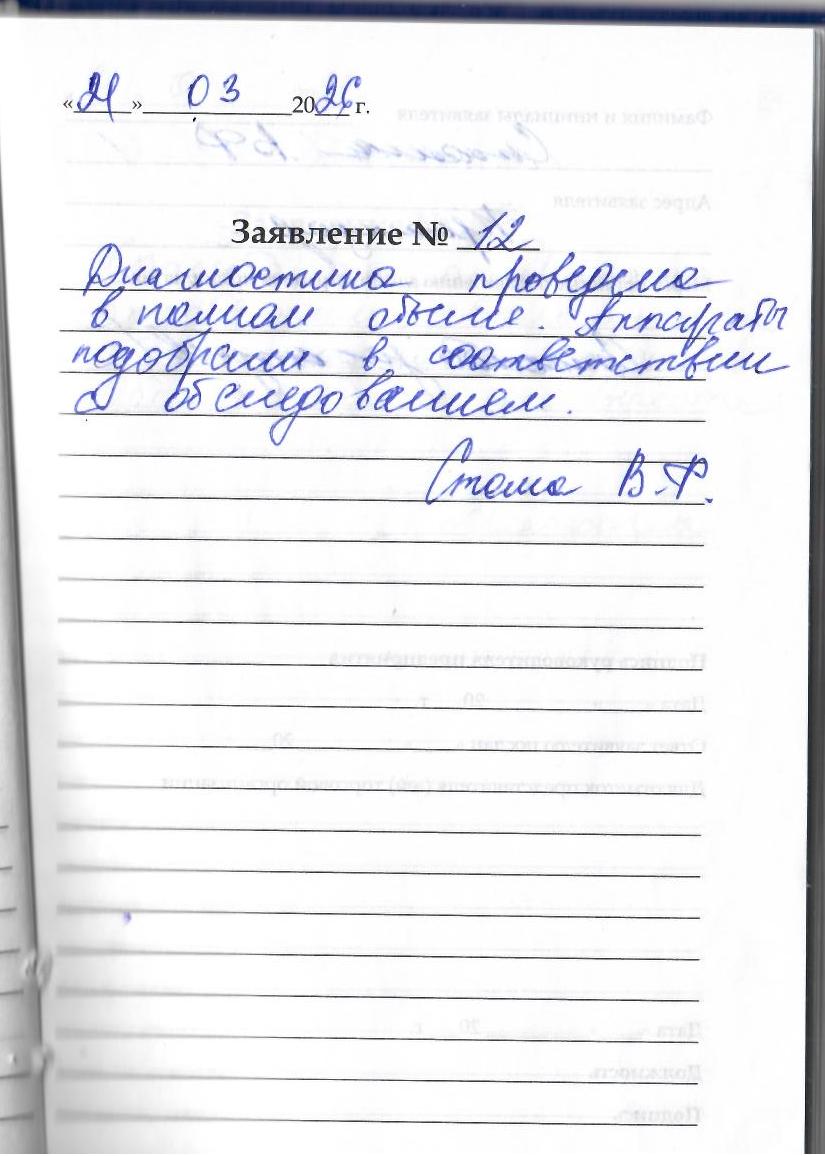 «21» 03 2026 г.
Заявление № 12
Диагностика проведена
в полном объеме. Аппараты
подобрали в соответствии
с обследованием.
Стома В.Ф.